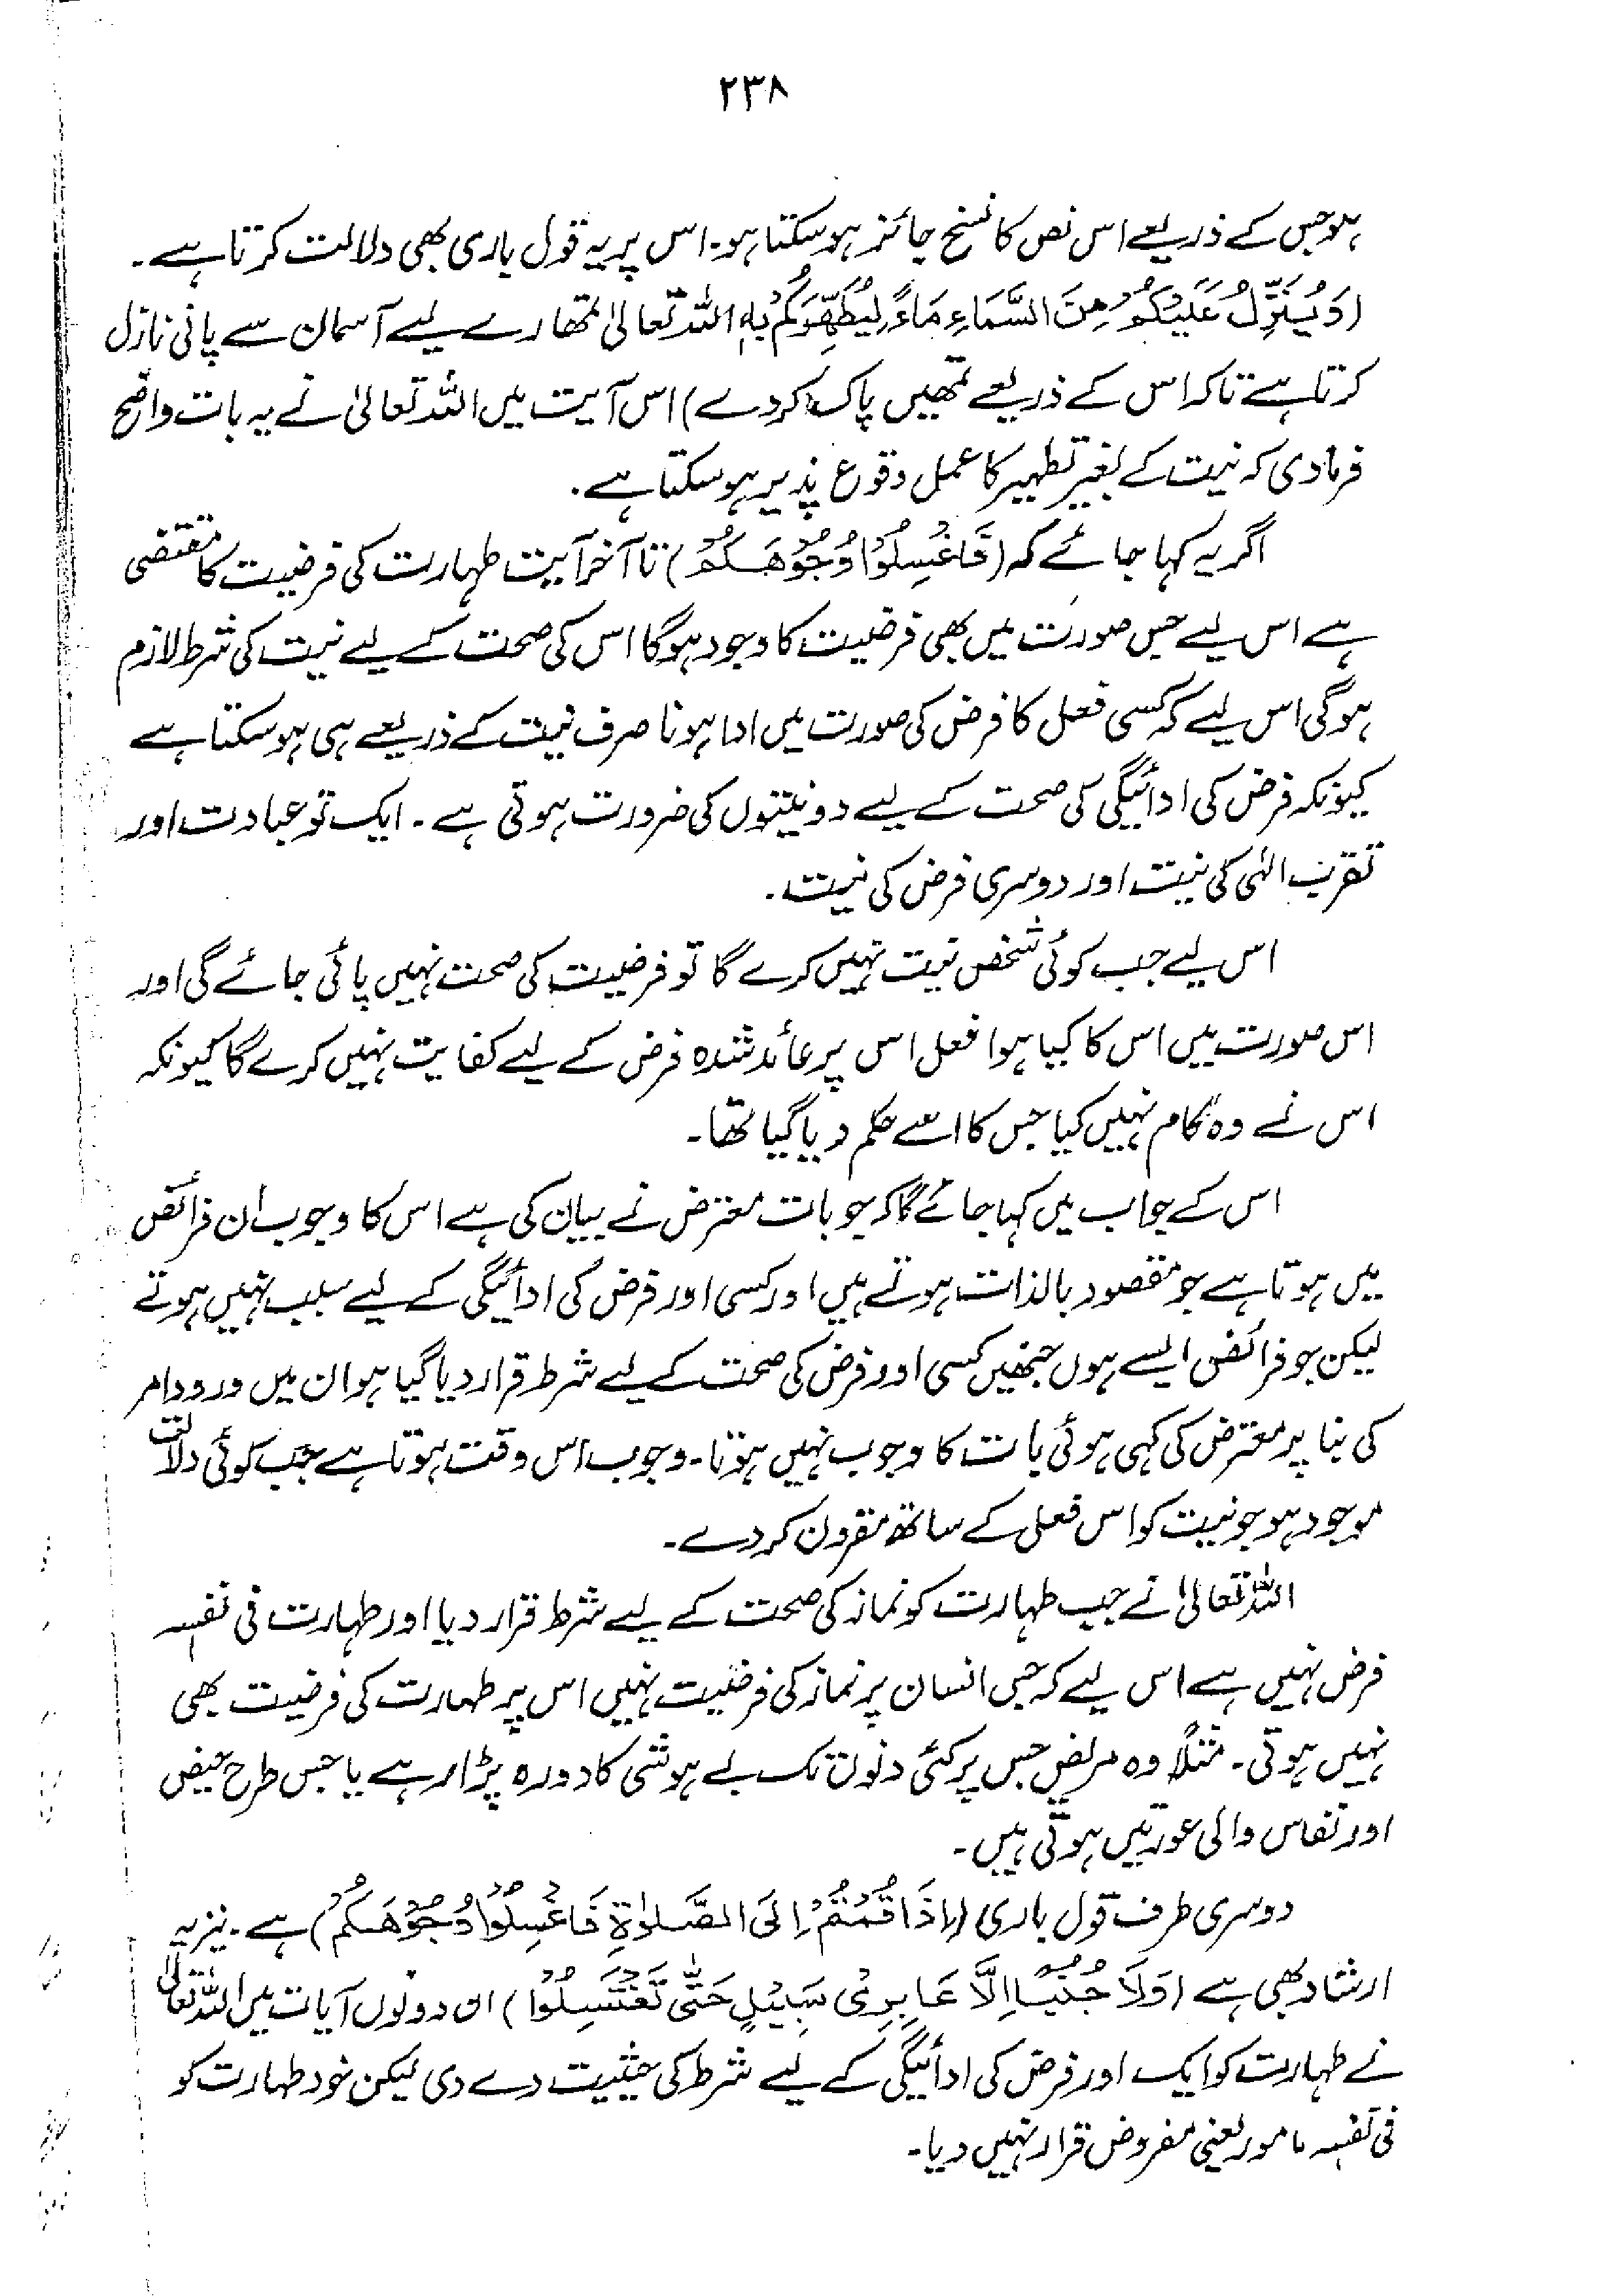 ۲۳۸
ہو جس کے ذریعے اس نص کا نسخ جائز ہو سکتا ہو۔ اس پر یہ قول باری بھی دلالت کرتا ہے۔
(وَيُنَزِّلُ عَلَيْكُمْ مِنَ السَّمَاءِ مَاءً لِيُطَهِّرَكُمْ بِهِ اللہ تعالیٰ تمھارے لیے آسمان سے پانی نازل
کرتا ہے تاکہ اس کے ذریعے تمھیں پاک کر دے) اس آیت میں اللہ تعالیٰ نے یہ بات واضح
فرما دی کہ نیت کے بغیر تطہیر کا عمل وقوع پذیر ہو سکتا ہے۔
اگر یہ کہا جائے کہ (فَاغْسِلُوْا وُجُوْهَكُمْ) تا آخر آیت طہارت کی فرضیت کا مقتضی
ہے اس لیے جس صورت میں بھی فرضیت کا وجود ہو گا اس کی صحت کے لیے نیت کی شرط لازم
ہو گی اس لیے کہ کسی فعل کا فرض کی صورت میں ادا ہونا صرف نیت کے ذریعے ہی ہو سکتا ہے
کیونکہ فرض کی ادائیگی کی صحت کے لیے دو نیتوں کی ضرورت ہوتی ہے۔ ایک تو عبادت اور
تقرب الٰہی کی نیت اور دوسری فرض کی نیت۔
اس لیے جب کوئی شخص نیت نہیں کرے گا تو فرضیت کی صحت نہیں پائی جائے گی اور
اس صورت میں اس کا کیا ہوا فعل اس پر عائد شدہ فرض کے لیے کفایت نہیں کرے گا کیونکہ
اس نے وہ کام نہیں کیا جس کا اسے حکم دیا گیا تھا۔
اس کے جواب میں کہا جائے گا کہ جو بات معترض نے بیان کی ہے اس کا وجوب ان فرائض
میں ہوتا ہے جو مقصود بالذات ہوتے ہیں اور کسی اور فرض کی ادائیگی کے لیے سبب نہیں ہوتے
لیکن جو فرائض ایسے ہوں جنھیں کسی اور فرض کی صحت کے لیے شرط قرار دیا گیا ہو ان میں ورود امر
کی بنا پر معترض کی کہی ہوئی بات کا وجوب نہیں ہوتا۔ وجوب اس وقت ہوتا ہے جب کوئی دلالت
موجود ہو جو نیت کو اس فعل کے ساتھ مقرون کر دے۔
اللہ تعالیٰ نے جب طہارت کو نماز کی صحت کے لیے شرط قرار دیا اور طہارت فی نفسہ
فرض نہیں ہے اس لیے کہ جس انسان پر نماز کی فرضیت نہیں اس پر طہارت کی فرضیت بھی
نہیں ہوتی۔ مثلاً وہ مریض جس پر کئی دنوں تک بے ہوشی کا دورہ پڑا رہے یا جس طرح حیض
اور نفاس والی عورتیں ہوتی ہیں۔
دوسری طرف قول باری (اِذَا قُمْتُمْ اِلَى الصَّلٰوةِ فَاغْسِلُوْا وُجُوْهَكُمْ) ہے۔ نیز یہ
ارشاد بھی ہے (وَلَا جُنُبًا اِلَّا عَابِرِىْ سَبِيْلٍ حَتّٰى تَغْتَسِلُوْا) ان دونوں آیات میں اللہ تعالیٰ
نے طہارت کو ایک اور فرض کی ادائیگی کے لیے شرط کی حیثیت دے دی لیکن خود طہارت کو
فی نفسہ مامور یعنی مفروض قرار نہیں دیا۔